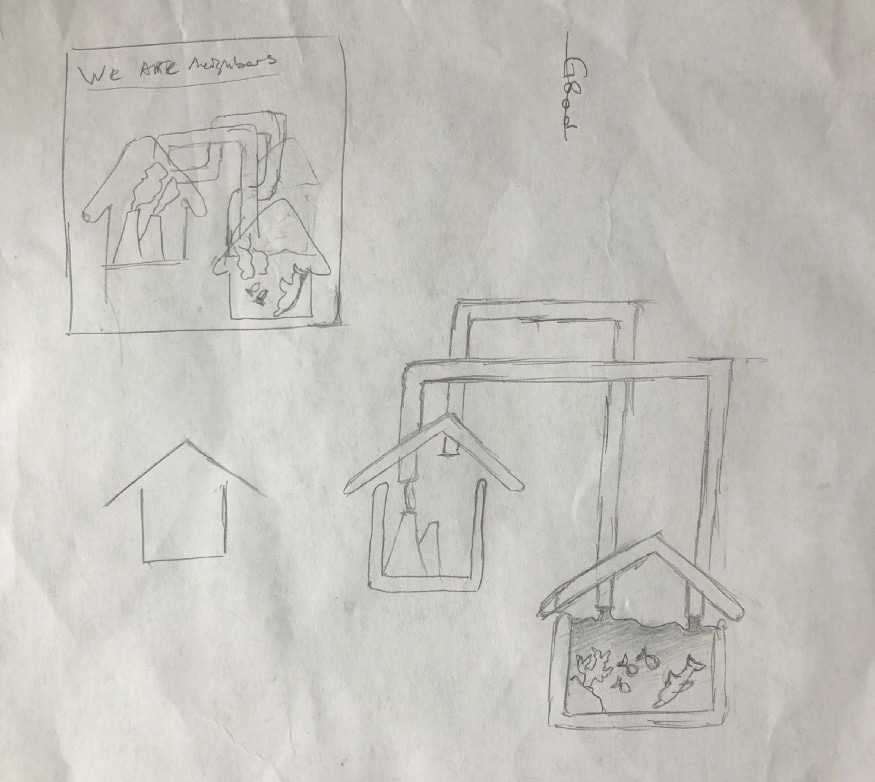 We ARE neighbors
Good